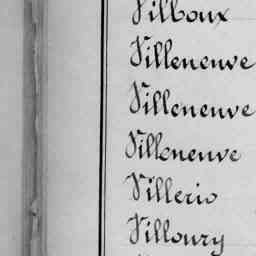 Villoux
Villeneuve
Villeneuve
Villeneuve
Villerio
Villoury